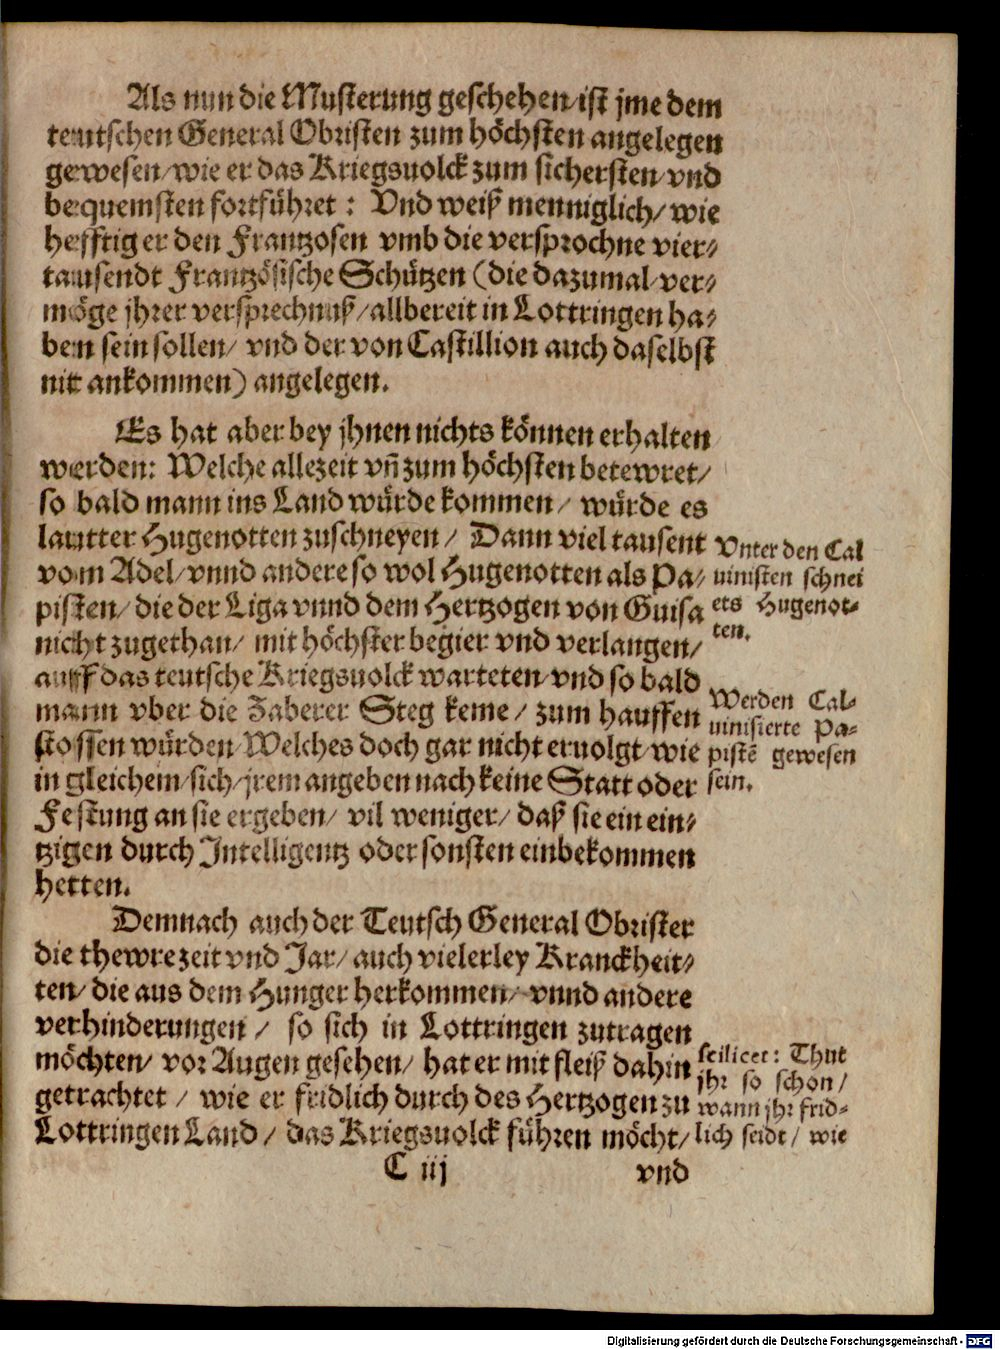 Als nun die Musterung geschehen/ist jme dem
teutschen General Obristen zum höchsten angelegen
gewesen/wie er das Kriegsuolck zum sichersten/vnd
bequemsten fortführet: Vnd weiß menniglich/wie
hefftig er den Frantzosen vmb die versprochne vier⸗
tausendt Frantzösische Schützen (die dazumal/ver⸗
möge jhrer versprechnuß/allbereit in Lottringen ha⸗
ben sein sollen/ vnd der von Castillion auch daselbst
nit ankommen) angelegen.
Es hat aber bey jhnen nichts können erhalten
werden: Welche allezeit vñ zum höchsten betewret/
so bald mann ins Land würde kommen/ würde es
lautter Hugenotten zuschneyen/ Dann viel tausent
vom Adel/vnnd andere so wol Hugenotten als Pa⸗
pisten/die der Liga vnnd dem Hertzogen von Guisa
nicht zugethan/ mit höchster begier vnd verlangen/
auff das teutsche Kriegsuolck warteten/vnd so bald
mann vber die Zaberer Steg keme/ zum hauffen
stossen würden/Welches doch gar nicht eruolgt/wie
in gleichem/sich/jrem angeben nach keine Statt oder
Festung an sie ergeben/ vil weniger/ daß sie ein ein⸗
tzigen durch Intelligentz oder sonsten einbekommen
hetten.
Vnter den Cal
uinisten schnei
ets Hugenot⸗
ten.
Werden Cal⸗
uinisierte Pa⸗
pistẽ gewesen
sein.
Demnach auch der Teutsch General Obrister
die thewre zeit vnd Jar/ auch vielerley Kranckheit⸗
ten/die aus dem Hunger herkommen/ vnnd andere
verhinderungen/ so sich in Lottringen zutragen
möchten/ vor Augen gesehen/ hat er mit fleiß dahin
getrachtet/ wie er fridlich durch des Hertzogen zu
Lottringen Land/ das Kriegsuolck führen möcht/
scilicet: Thut
jhr so schon/
wann jhr frid⸗
lich seidt/ wie
C iij
vnd
Digitalisierung gefördert durch die Deutsche Forschungsgemeinschaft - DFG